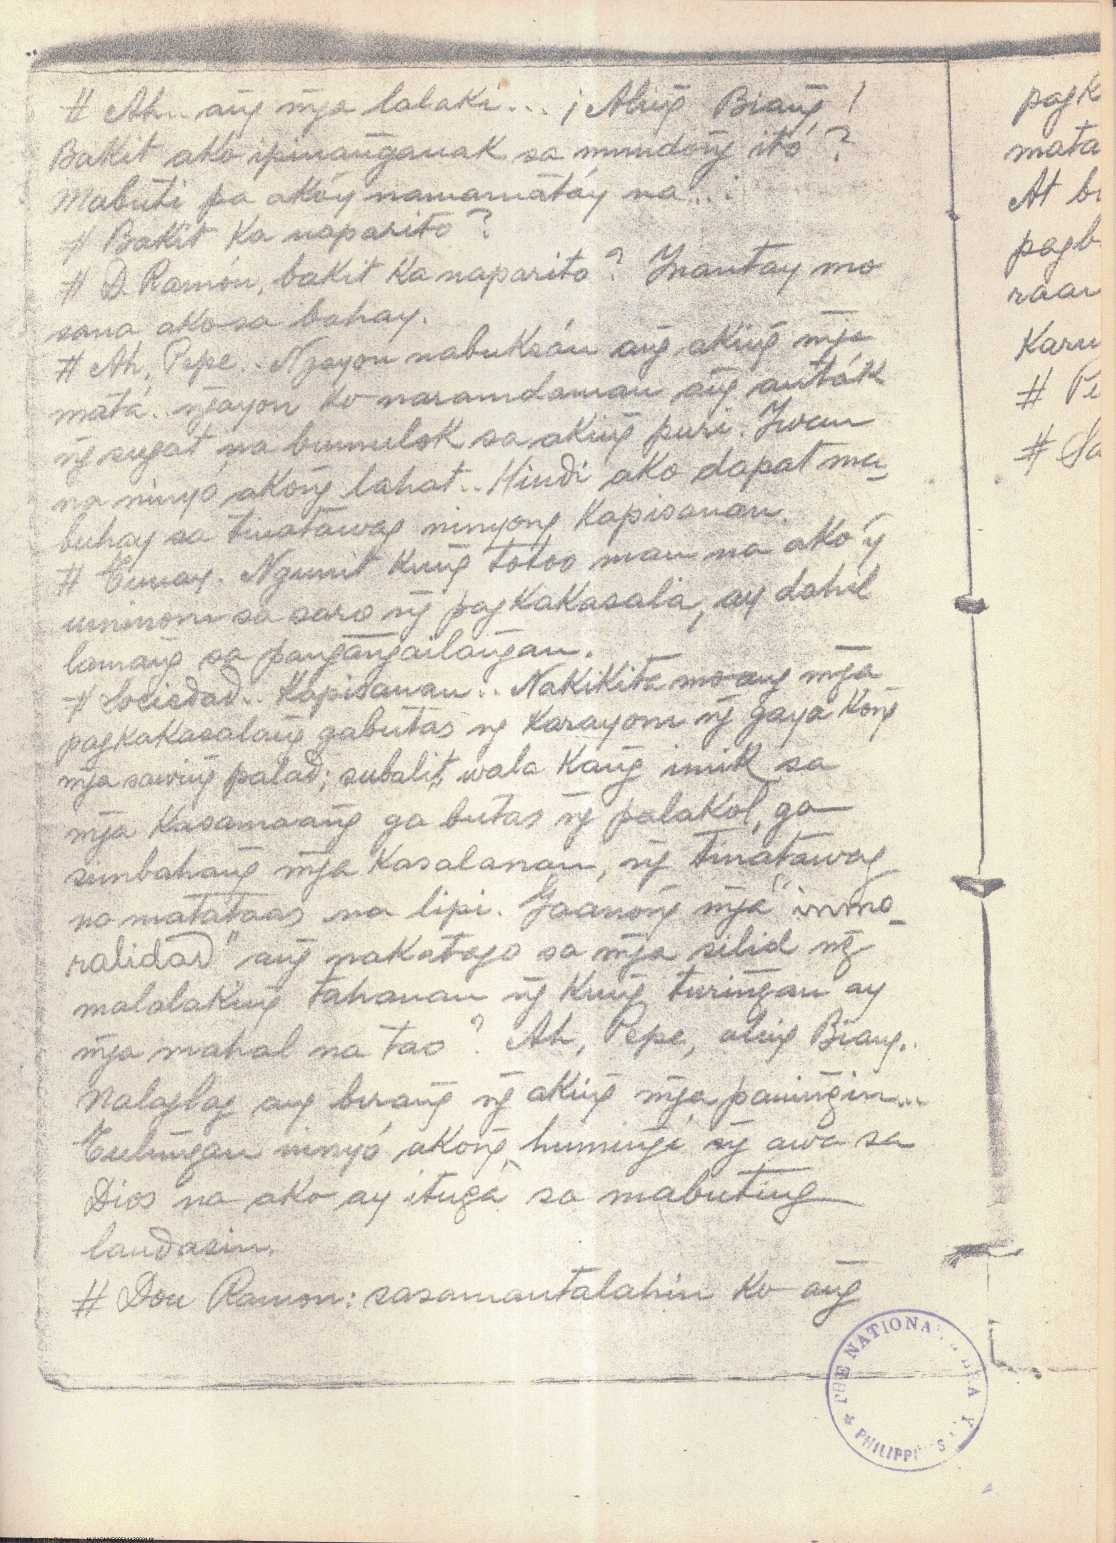 # Ah.. ang̃ mg̃a lalaki... ¡ Aling̃ Biang̃ !
Bakit ako ipinang̃anak sa mundong̃ itó ?
Mabuti pa akóy namamatáy na...
# Bakit ka naparito ?
# D. Ramón, bakit ka naparito ? Inantay mo
sana ako sa bahay.
# Ah, Pepe.. Ng̃ayon nabuksán ang̃ aking̃ mg̃a
matá.. ng̃ayon ko naramdaman ang̃ anták
ng̃ sugat na bumulok sa aking̃ puri. Iwan
na ninyó akong̃ lahat.. Hindi ako dapat ma-
buhay sa tinatawag ninyong kapisanan.
# Tunay. Ngunit kung̃ totoo man na akó'y
uminom sa saro ng̃ pagkakasala, ay dahil
lamang̃ sa pang̃ang̃ailang̃an.
# Sociedad.. Kapisanan.. Nakikita mo ang mg̃a
pagkakasalang̃ gabutas ng karayom ng̃ gaya kong̃
mga sawing̃ palad; subalit, wala kang̃ imik sa
mg̃a kasamaang̃ ga butas ng̃ palakol, ga
simbahang̃ mg̃a kasalanan, ng̃ tinatawag
na matataas na lipi. Gaanong̃ mg̃a "inmo-
ralidad" ang̃ nakatago sa mg̃a silid ng̃
malalaking̃ tahanan ng̃ kung̃ turing̃an ay
mg̃a mahal na tao ? Ah, Pepe, aling̃ Biang..
Nalaglag ang birang̃ ng̃ aking̃ mg̃a paning̃in...
Tulung̃an ninyó akong̃ huming̃i ng̃ awa sa
Dios na ako ay itugá sa mabuting
landasin.
# Don Ramon: sasamantalahin ko ang̃
pagk
mata
At b
pagb
raan
Karu
# Pe
# Sa
THE NATIONA
PHILIPP S